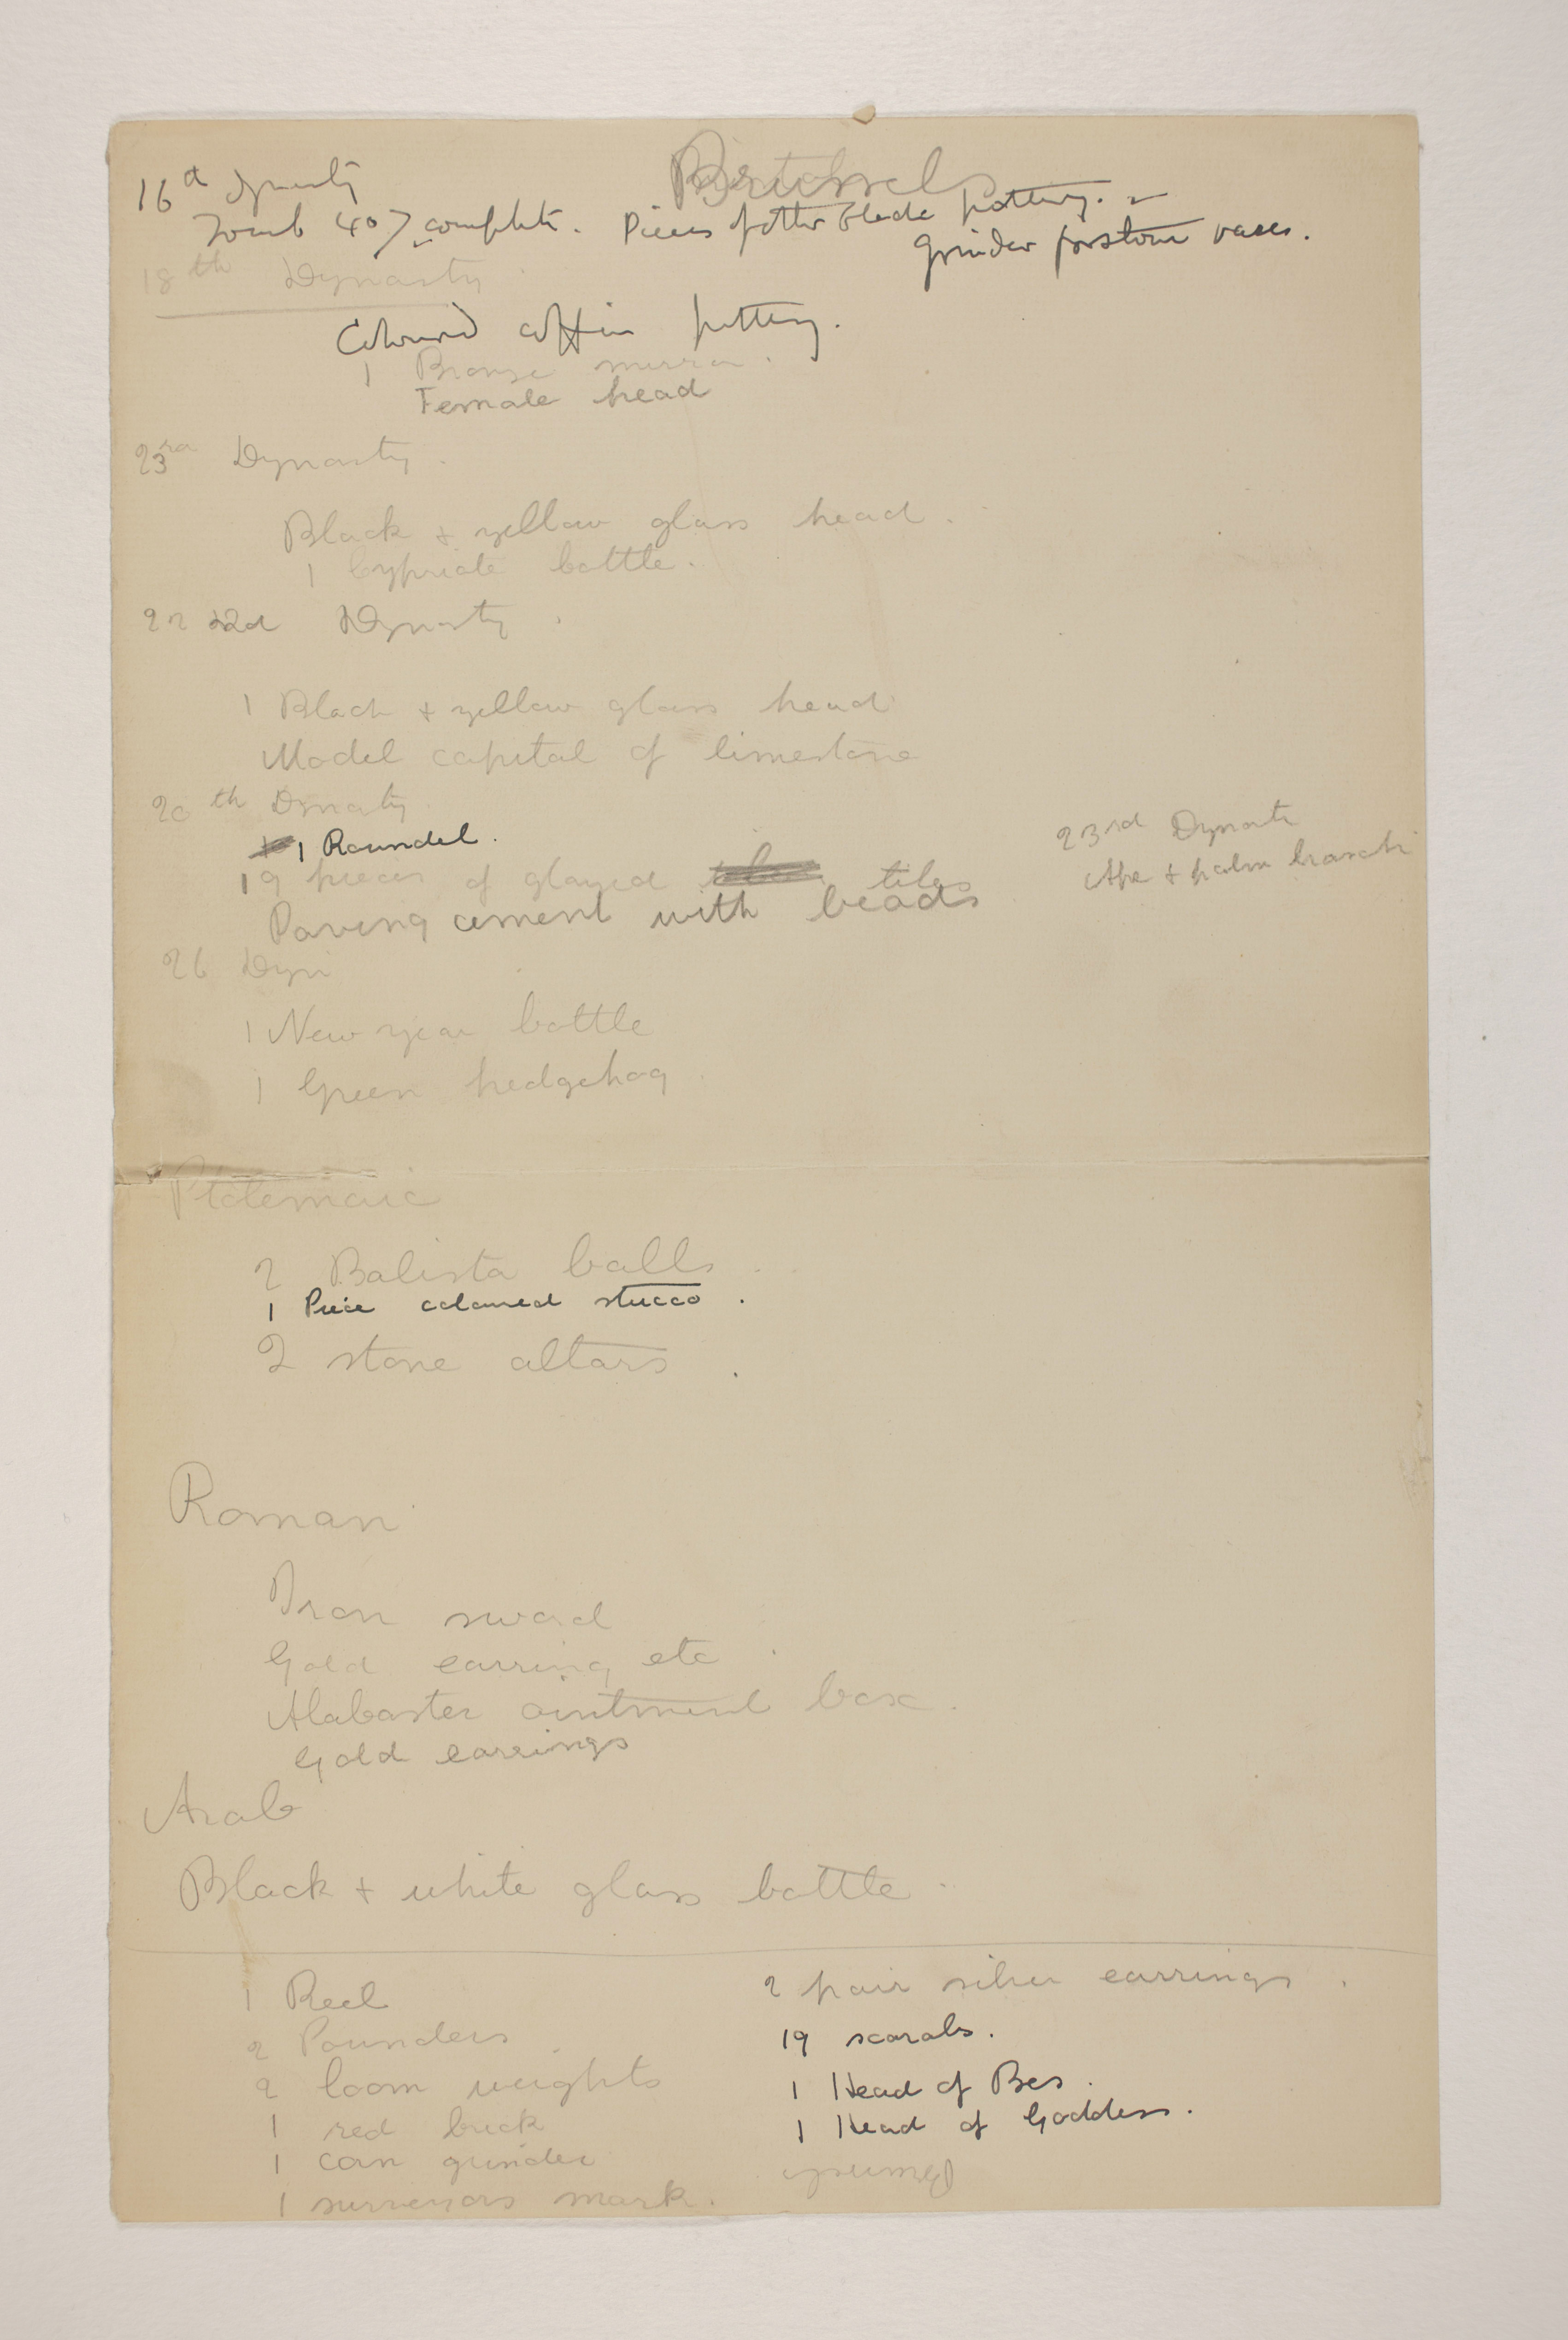 Brussels
16th Dynasty
Tomb 407 complete. Pieces of other black pottery.
Grinder for stone vases.
18th Dynasty
Coloured coffin pottery.
1 Bronze mirror.
Female head
23rd Dynasty.
Black + yellow glass head.
1 Cypriote bottle.
22nd Dynasty.
1 Black + yellow glass head
Model capital of limestone
20th Dynaty
1 Roundel.
19 pieces of glazed tiles
Paving cement with beads
23rd Dynasty
Ape + palm branch
26 Dyn
1 New year bottle
1 Green hedgehog.
Ptolemaic
2 Balista balls.
1 Piece coloured stucco.
2 stone altars.
Roman
Iron sword
Gold earring etc.
Alabaster ointment box.
Gold earrings
Arab
Black + white glass bottle.
1 Reel
2 Pounders
2 loom weights
1 red brick
1 corn grinder
1 surveyors mark.
2 pair silver earrings.
19 scarabs.
1 Head of Bes.
1 Head of Goddess.